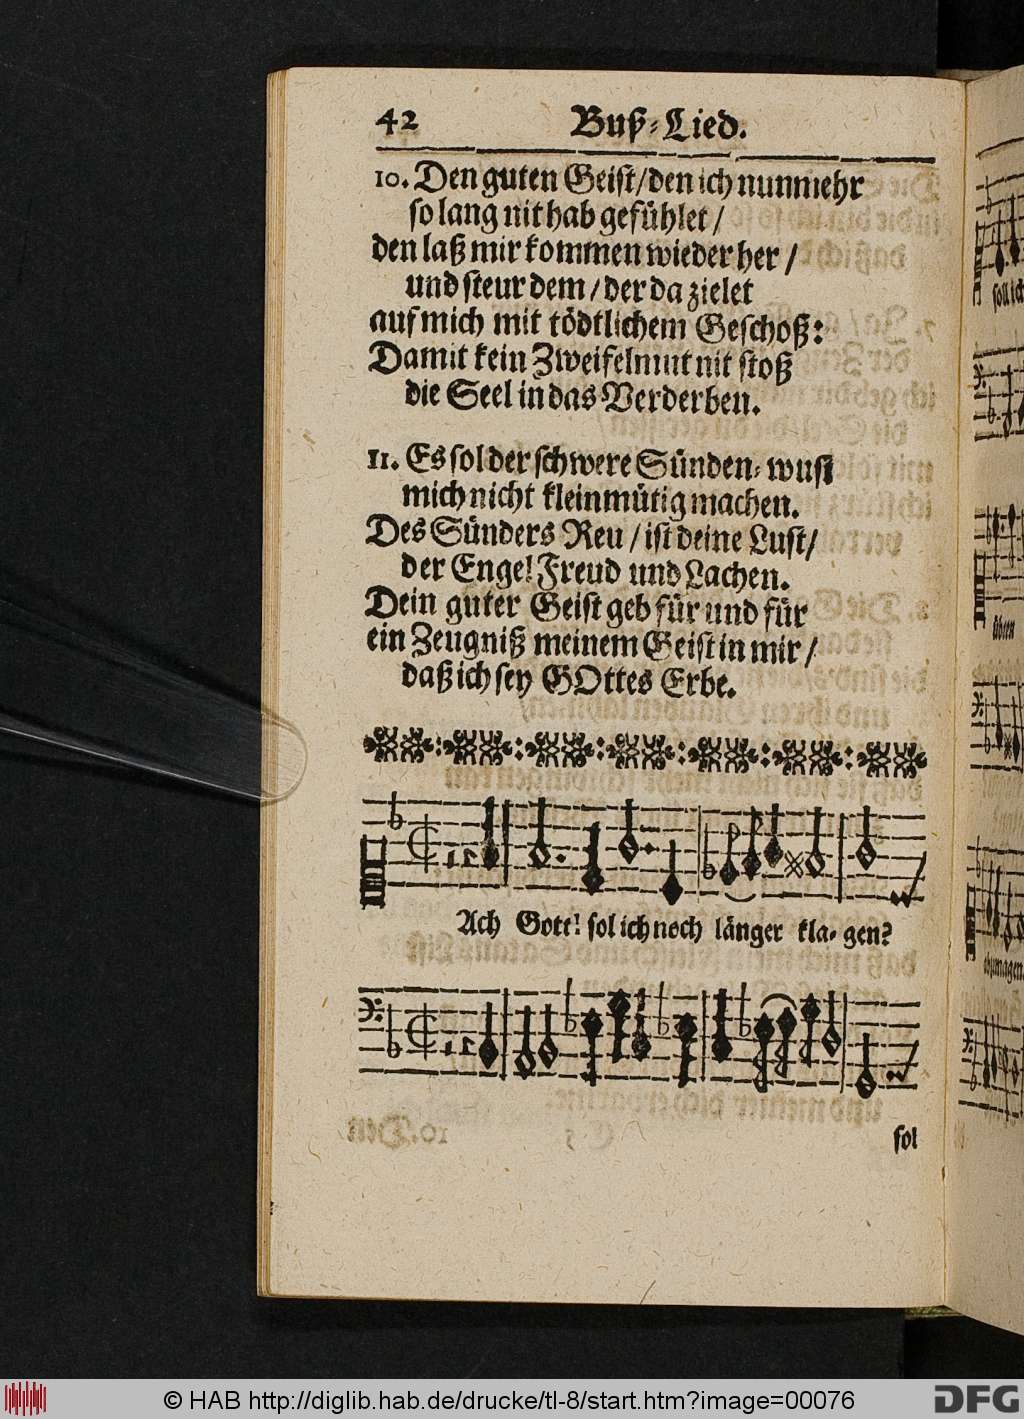 42 Buß-Lied.
10. Den guten Geist/den ich nunmehr
so lang nit hab gefühlet/
den laß mir kommen wieder her/
und steur dem/der da zielet
auf mich mit tödtlichem Geschoß:
Damit kein Zweifelmut nit stoß
die Seel in das Verderben.
11. Es sol der schwere Sünden-wust
mich nicht kleinmütig machen.
Des Sünders Reu/ist deine Lust/
der Engel Freud und Lachen.
Dein guter Geist geb für und für
ein Zeugniß meinem Geist in mir/
daß ich sey GOttes Erbe.
Ach Gott! sol ich noch länger kla-gen?
sol
soll ich
üben
© HAB http://diglib.hab.de/drucke/tl-8/start.htm?image=00076
DFG